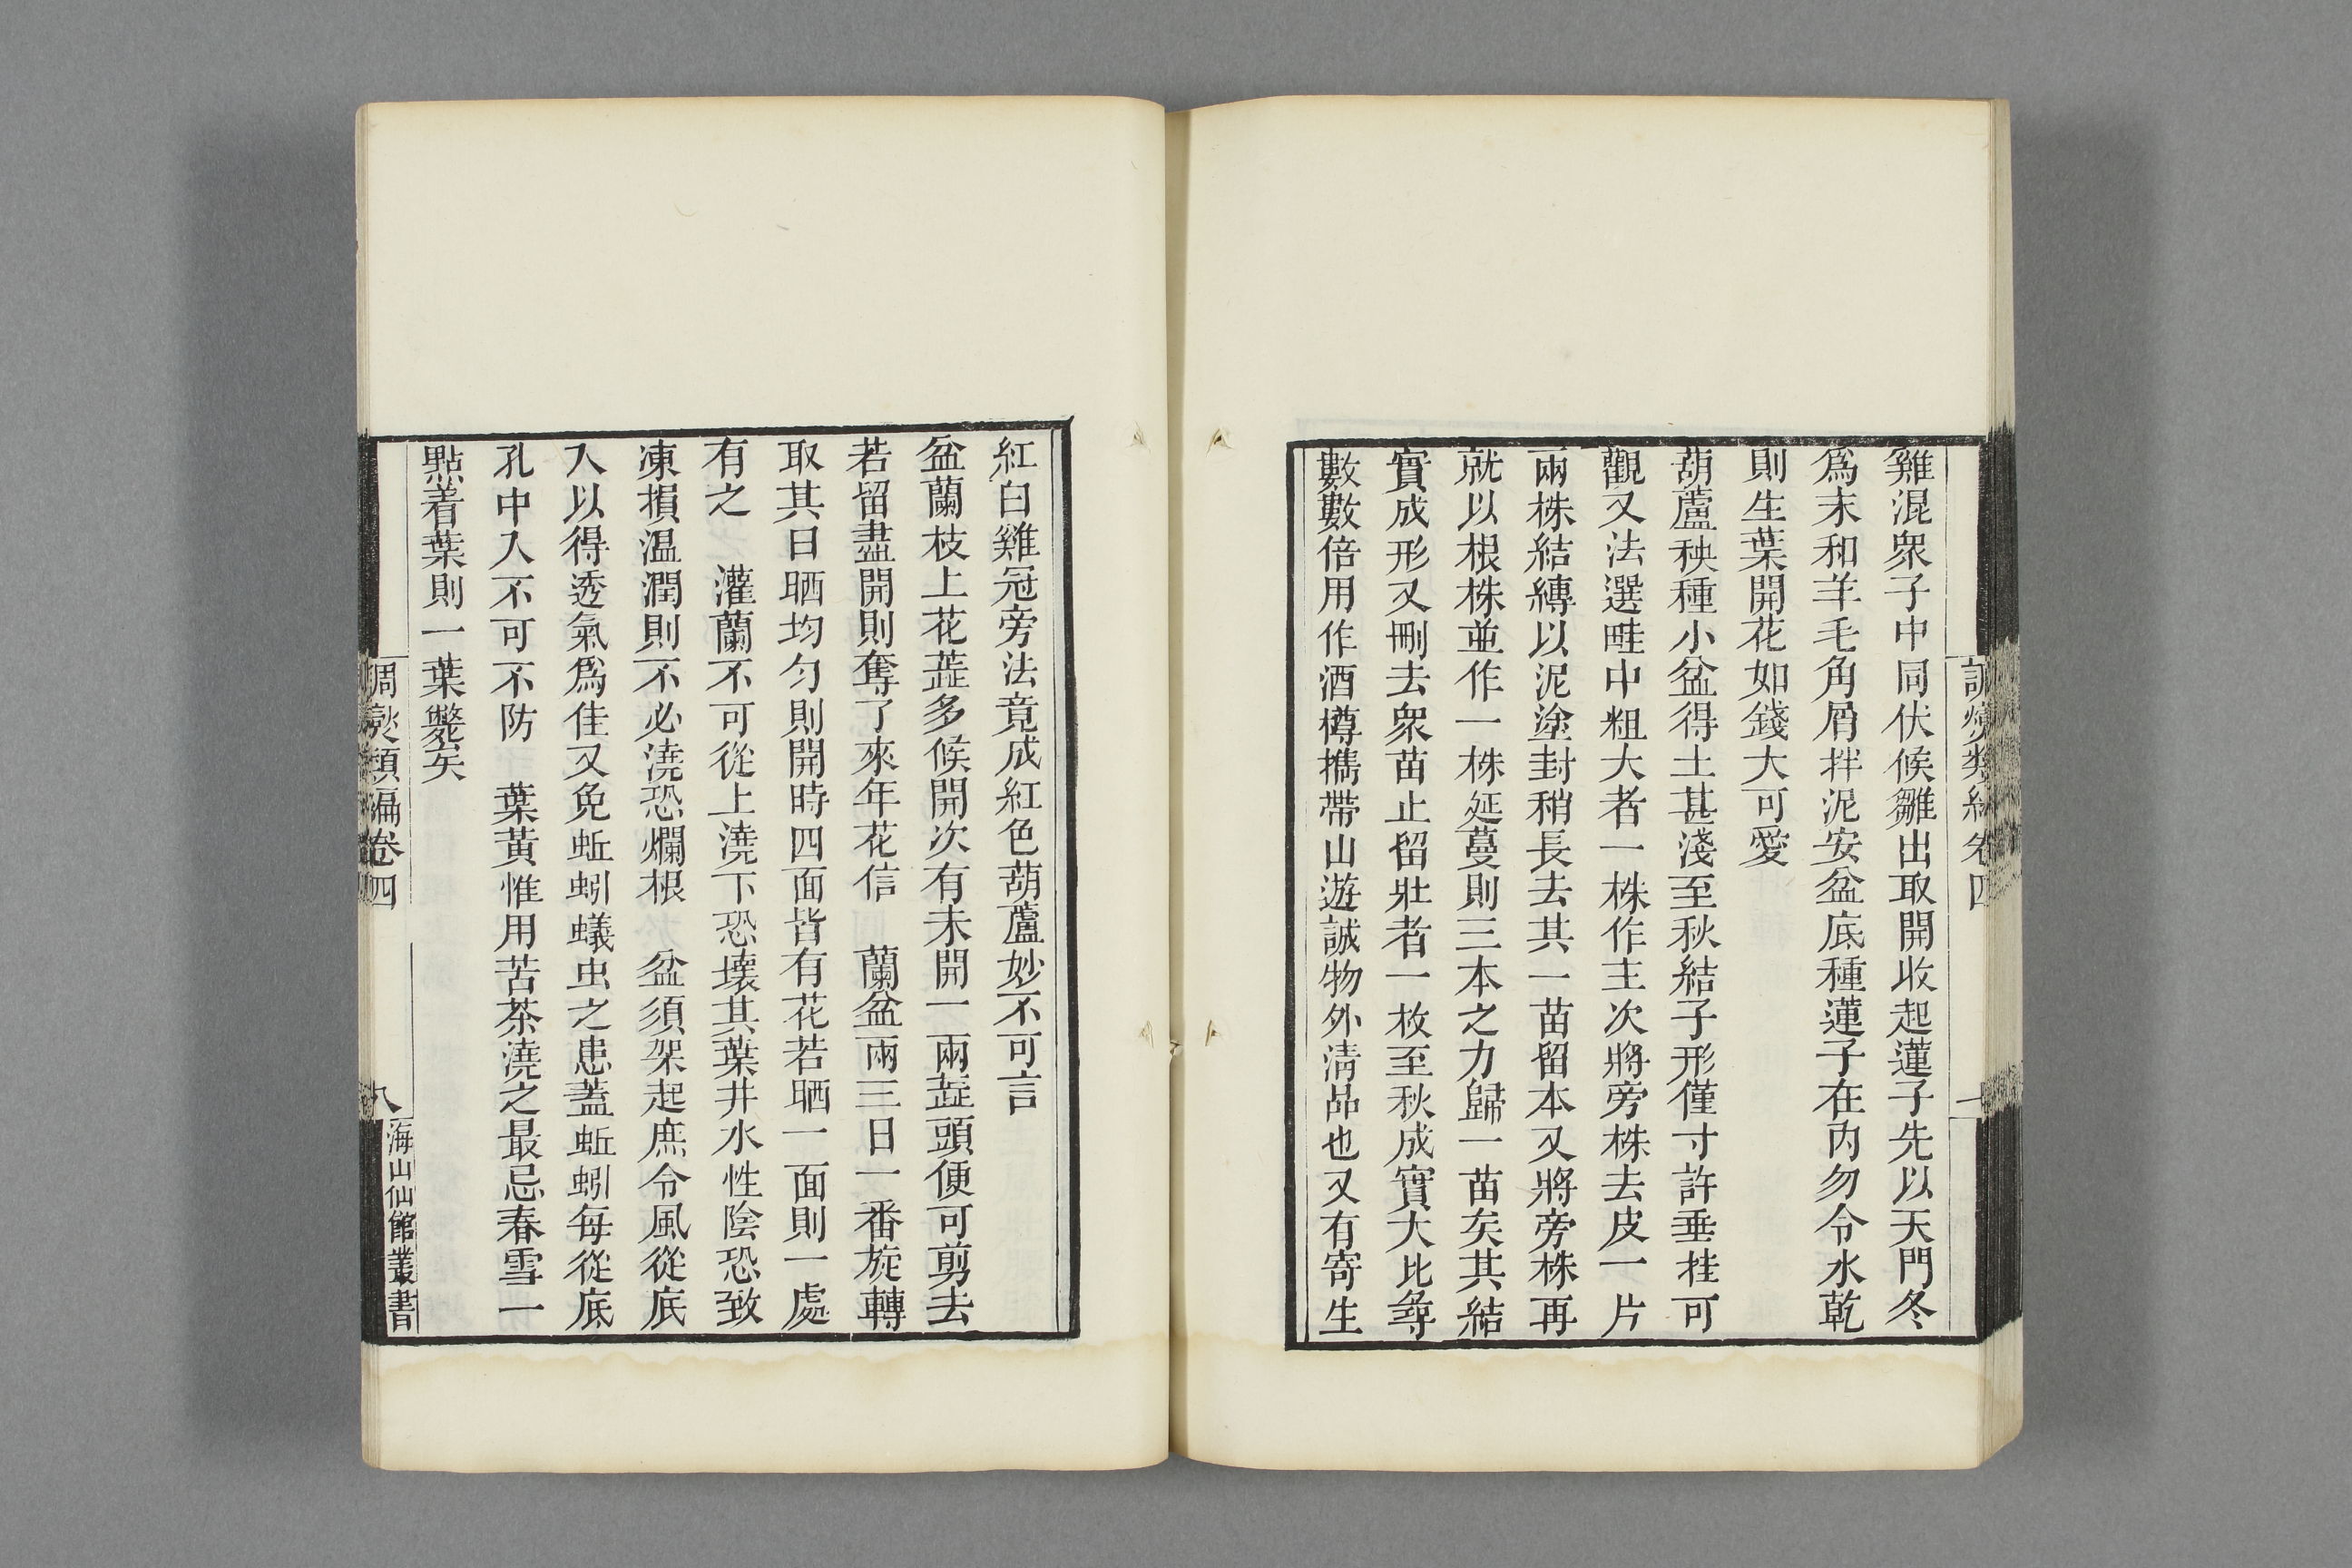 雞混衆子中同伏候雛出取開收起蓮子先以天門冬
爲末和羊毛角屑拌泥安盆底種蓮子在內勿令水乾
則生葉開花如錢大可愛
葫蘆秧種小盆得土甚淺至秋結子形僅寸許垂挂可
觀又法選畦中粗大者一株作主次將旁株去皮一片
兩株結縛以泥塗封稍長去其一苗留本又將旁株再
就以根株並作一株延蔓則三本之力歸一苗矣其結
實成形又刪去衆苗止留壯者一枚至秋成實大比尋
數數倍用作酒樽攜帶山遊誠物外淸品也又有寄生
紅白雞冠旁法竟成紅色葫蘆妙不可言
盆蘭枝上花蕋多候開次有未開一兩蕋頭便可剪去
若留盡開則奪了來年花信　蘭盆兩三日一番旋轉
取其日晒均勻則開時四面皆有花若晒一面則一處
有之　灌蘭不可從上澆下恐壞其葉井水性陰恐致
凍損温潤則不必澆恐爛根　盆須架起庶令風從底
入以得透氣爲佳又免蚯蚓蟻虫之患蓋蚯蚓每從底
孔中入不可不防　葉黃惟用苦茶澆之最忌春雪一
點着葉則一葉斃矣
調燮類編卷四
八
海山仙館叢書